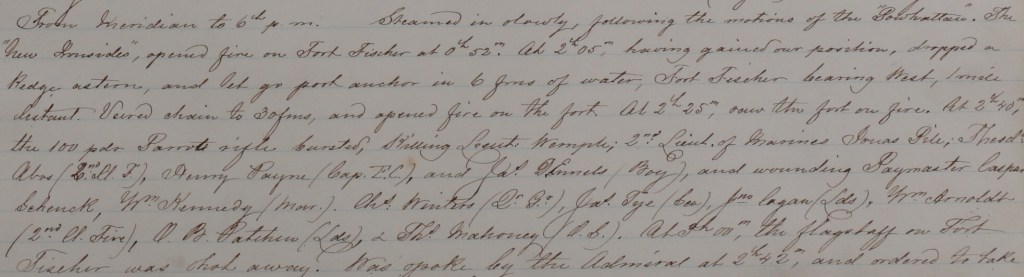 From Meridian to 6h p.m. Steamed in slowly, following the motions of the "Powhattan". The
"New Ironsides", opened fire on Fort Fischer at 0h 52m. At 2h 05m, having gained our position, dropped a
Kedge astern, and let go port anchor in 6 fms of water, Fort Fischer bearing West, 1 mile
distant. Veered chain to 30 fms, and opened fire on the fort. At 2h 25m, saw the fort on fire. At 2h 40m,
the 100 pdr Parrott rifle bursted, Killing Lieut. Wemple; 2nd Lieut. of Marines Jonas Pile; Theod.
Abos (2nd Cl. F), Henry Payne (Cap. F.C), and Jas. Daniels (Boy), and wounding Paymaster Caspar
Schenck, Wm Kennedy (Mar.). Chs. Winters (Qr. Gr), Jas. Tye (Sea), Jno. Cogan (Lds), Wm Arnoldt
(2nd Cl. Fire), O. B. Patchen (Lds), & Ths. Mahoney (O.S.). At 3h 00m, the flagstaff on Fort
Fischer was shot away. Was spoke by the Admiral at 2h 42m, and ordered to take